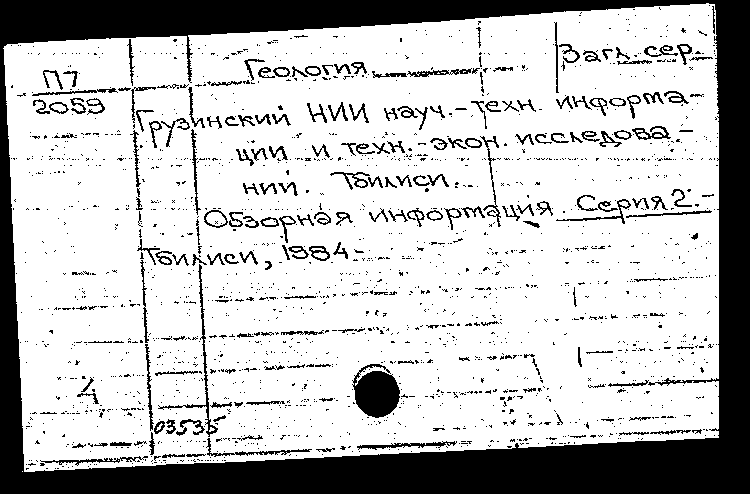 Загл. сер.
П7 Геология
2059
Грузинский НИИ науч.-техн. информа-
ции и техн.-экон. исследова-
ний. Тбилиси.
Обзорная информация Серия 2.-
Тбилиси, 1984-
4
03535